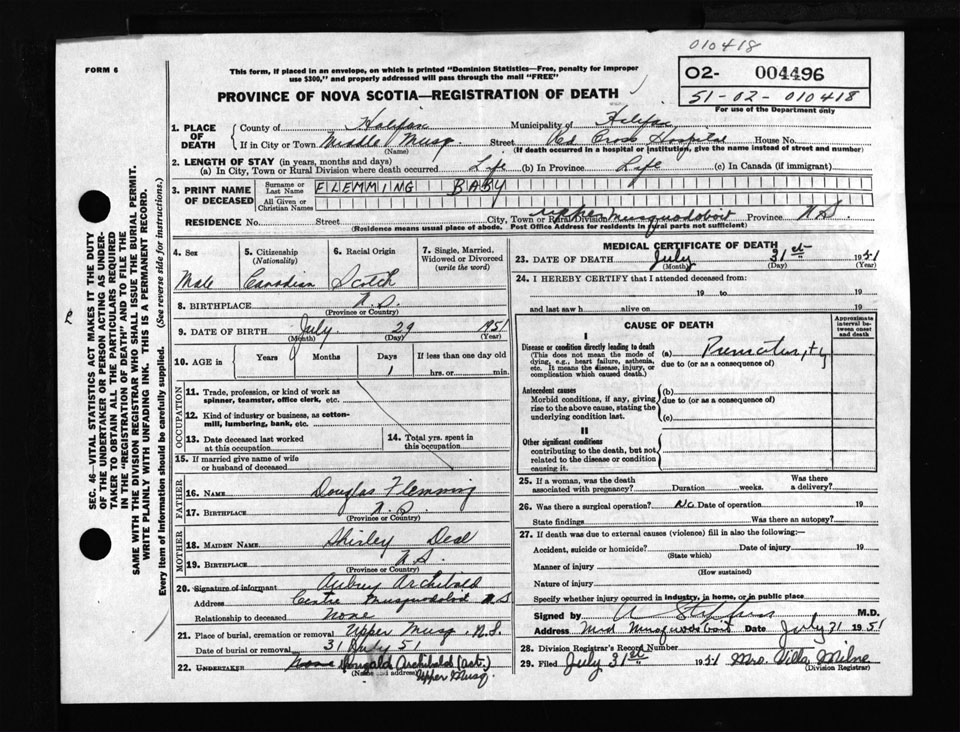 010418
FORM 6
This form, if placed in an envelope, on which is printed "Dominion Statistics—Free, penalty for improper
use $300," and properly addressed will pass through the mail "FREE"
02- 004496
51-02-010418
For use of the Department only
PROVINCE OF NOVA SCOTIA—REGISTRATION OF DEATH
1. PLACE OF DEATH
County of Halifax Municipality of Halifax
If in City or Town Middle Musq. Street Red Cross Hospital House No.
(Name) (If death occurred in a hospital or institution, give the name instead of street and number)
2. LENGTH OF STAY (in years, months and days)
(a) In City, Town or Rural Division where death occurred Life (b) In Province Life (c) In Canada (if immigrant)
3. PRINT NAME OF DECEASED
Surname or Last Name FLEMMING BABY
All Given or Christian Names
RESIDENCE No. Street City, Town or Rural Division Upper Musquodoboit Province N.S.
(Residence means usual place of abode. Post Office Address for residents in rural parts not sufficient)
4. Sex 5. Citizenship (Nationality) 6. Racial Origin 7. Single, Married, Widowed or Divorced (write the word)
Male Canadian Scotch
8. BIRTHPLACE N.S.
(Province or Country)
9. DATE OF BIRTH July 29 1951
(Month) (Day) (Year)
10. AGE in Years Months Days If less than one day old
1 hrs. or min.
OCCUPATION
11. Trade, profession, or kind of work as
spinner, teamster, office clerk, etc.
12. Kind of industry or business, as cotton-
mill, lumbering, bank, etc.
13. Date deceased last worked
at this occupation
14. Total yrs. spent in
this occupation
15. If married give name of wife
or husband of deceased
FATHER
16. NAME Douglas Flemming
17. BIRTHPLACE N.S.
(Province or Country)
MOTHER
18. MAIDEN NAME Shirley Deal
19. BIRTHPLACE N.S.
(Province or Country)
20. Signature of informant Aubrey Archibald
Address Centre Musquodoboit N.S
Relationship to deceased None
21. Place of burial, cremation or removal Upper Musq. N.S.
Date of burial or removal 31 July 51
22. UNDERTAKER None Archibald (act.)
(Name and address) Upper Musq.
MEDICAL CERTIFICATE OF DEATH
23. DATE OF DEATH July 31st 1951
(Month) (Day) (Year)
24. I HEREBY CERTIFY that I attended deceased from:
19 to 19
and last saw h alive on 19
CAUSE OF DEATH
Approximate interval between onset and death
I
Disease or condition directly leading to death
(This does not mean the mode of
dying, e.g., heart failure, asthenia,
etc. It means the disease, injury, or
complication which caused death.)
(a) Prematurity
due to (or as a consequence of)
Antecedent causes
Morbid conditions, if any, giving
rise to the above cause, stating the
underlying condition last.
(b)
due to (or as a consequence of)
(c)
II
Other significant conditions
contributing to the death, but not
related to the disease or condition
causing it.
25. If a woman, was the death
associated with pregnancy? Duration weeks. Was there
a delivery?
26. Was there a surgical operation? No Date of operation 19
State findings Was there an autopsy?
27. If death was due to external causes (violence) fill in also the following:—
Accident, suicide or homicide? Date of injury 19
(State which)
Manner of injury
(How sustained)
Nature of injury
Specify whether injury occurred in industry, in home, or in public place
Signed by M.D.
Address Mid Musquodoboit Date July 31 1951
28. Division Registrar's Record Number
29. Filed July 31st 1951 Mrs. Villa Milne
(Division Registrar)
SEC. 46—VITAL STATISTICS ACT MAKES IT THE DUTY
OF THE UNDERTAKER OR PERSON ACTING AS UNDER-
TAKER TO OBTAIN ALL THE PARTICULARS REQUIRED
IN THE "REGISTRATION OF DEATH" AND TO FILE THE
SAME WITH THE DIVISION REGISTRAR WHO SHALL ISSUE THE BURIAL PERMIT.
WRITE PLAINLY WITH UNFADING INK. THIS IS A PERMANENT RECORD.
Every item of information should be carefully supplied. (See reverse side for instructions.)